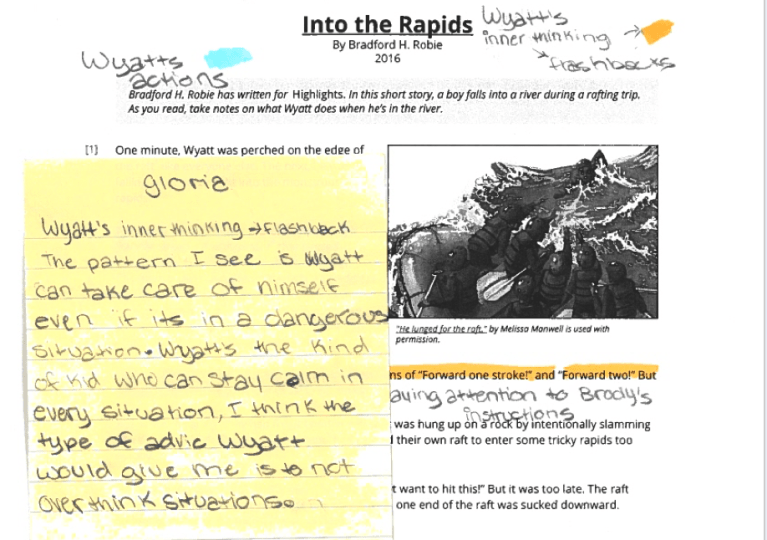 Into the Rapids
Wyatt's
inner thinking →
→ flashbacks
By Bradford H. Robie
2016
Wyatts
actions
Bradford H. Robie has written for Highlights. In this short story, a boy falls into a river during a rafting trip.
As you read, take notes on what Wyatt does when he's in the river.
[1] One minute, Wyatt was perched on the edge of
gloria
Wyatt's inner thinking → flashback
The pattern I see is Wyatt
can take care of himself
even if its in a dangerous
situation. Wyatt's the kind
of kid who can stay calm in
every situation, I think the
type of advic Wyatt
would give me is to not
overthink situations.
"He lunged for the raft." by Melissa Manwell is used with
permission.
ns of "Forward one stroke!" and "Forward two!" But
aying attention to Brody's
instructions
was hung up on a rock by intentionally slamming
their own raft to enter some tricky rapids too
t want to hit this!" But it was too late. The raft
one end of the raft was sucked downward.